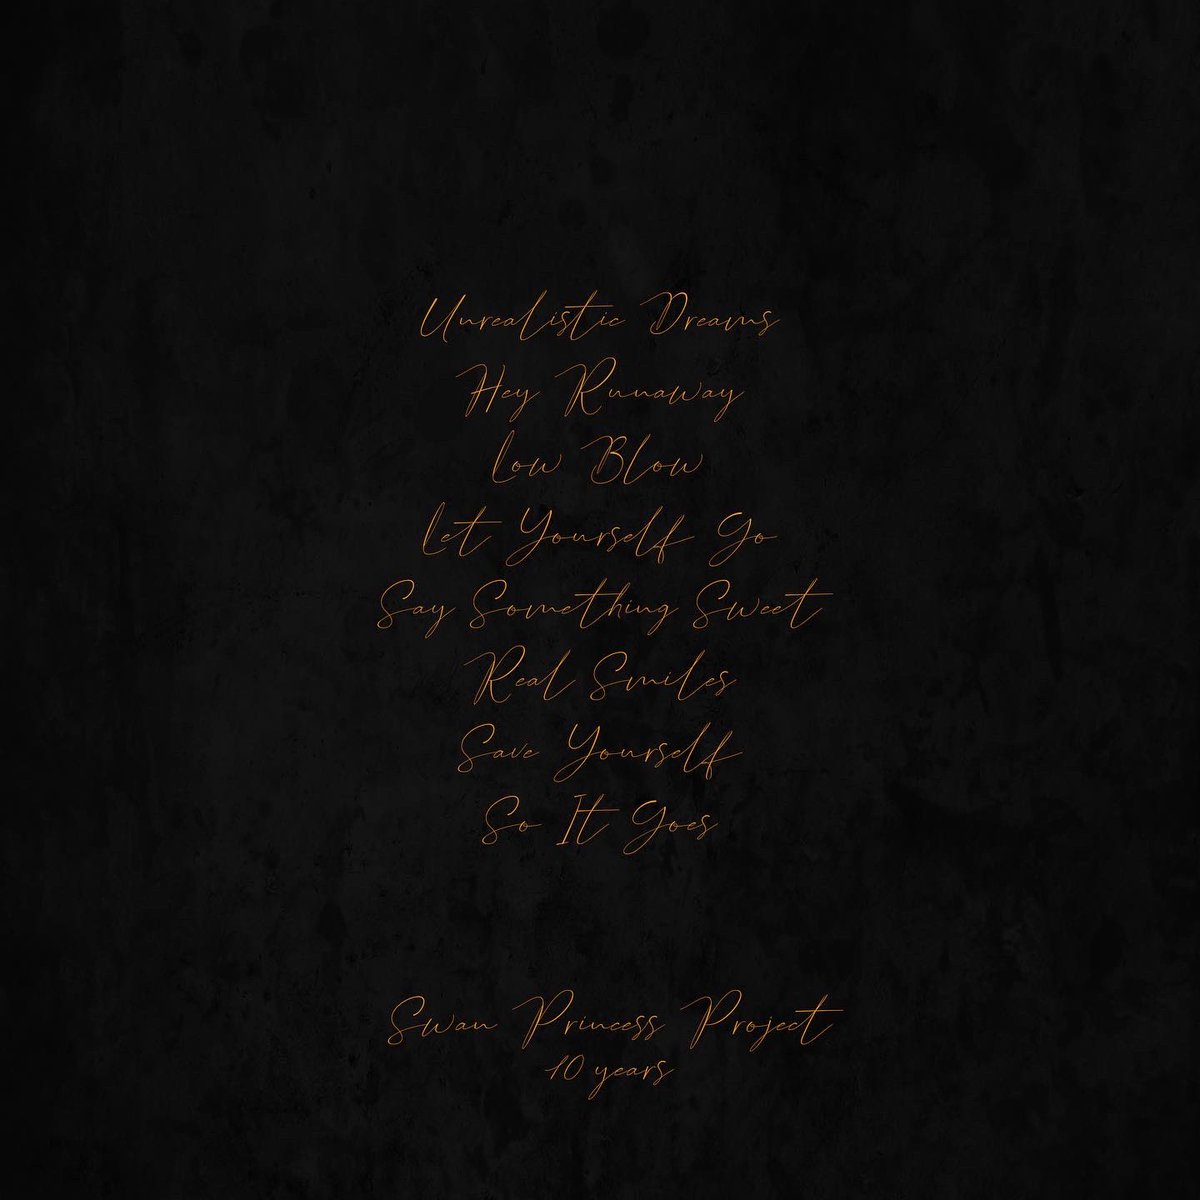 Unrealistic Dreams
Hey Runaway
Low Blow
Let Yourself Go
Say Something Sweet
Real Smiles
Save Yourself
So It Goes
Swan Princess Project
10 years